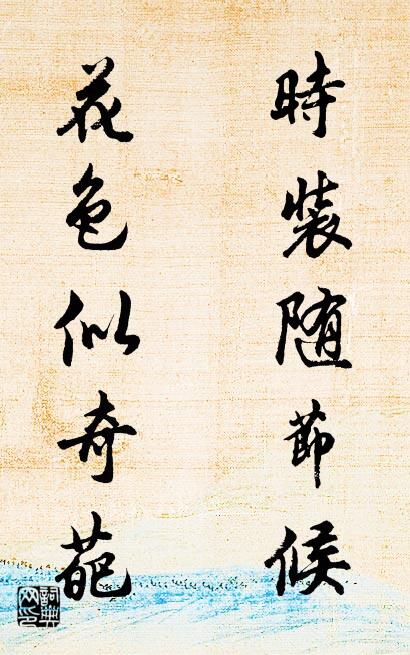 時裝随節候
花色似奇葩